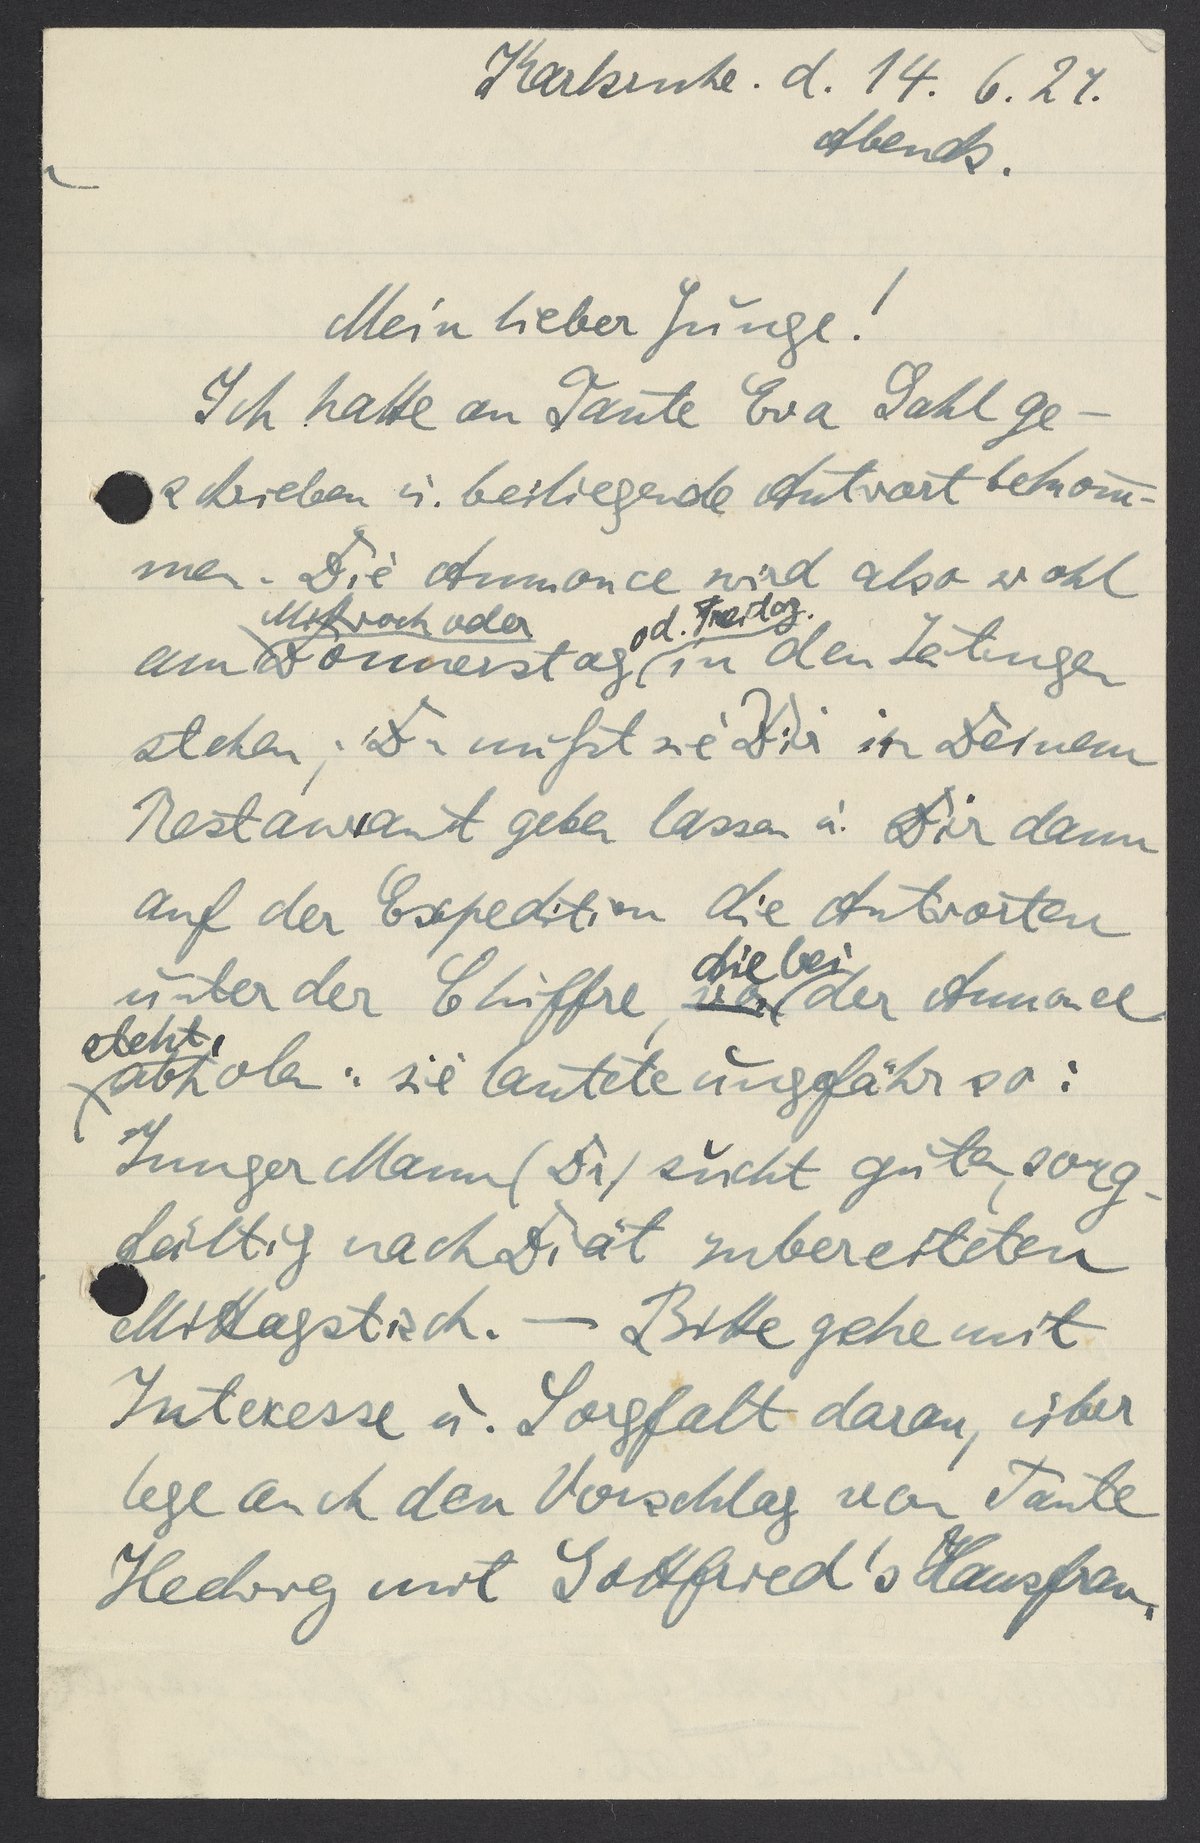 Karlsruhe. d. 14. 6. 27.
Abends.
Mein lieber Junge!
Ich hatte an Tante Eva Dahl ge-
schrieben u. beiliegende Antwort bekom-
men. Die Annonce wird also wohl
Mittwoch oder od. Freitag.
am Donnerstag in den Zeitungen
stehen, Du mußt sie Dir in Deinem
Restaurant geben lassen u. Dir dann
auf der Expedition die Antworten
die bei
unter der Chiffre, von der Annonce
steht,
abholen. sie lautete ungefähr so:
Junger Mann (Dr) sucht guten, sorg-
fältig nach Diät zubereiteten
Mittagstisch. — Bitte gehe mit
Interesse u. Sorgfalt daran, über
lege auch den Vorschlag von Tante
Hedwig mit Gottfried's Hausfrau.